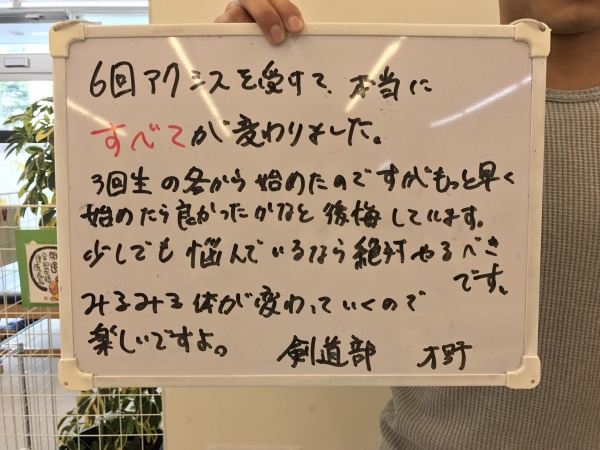 6回アクシスを受けて、本当に
すべてが変わりました。
3回生の冬から始めたのですがもっと早く
始めたら良かったかなと後悔しています。
少しでも悩んでいるなら絶対やるべき
です。
みるみる体が変わっていくので
楽しいですよ。 剣道部 才野